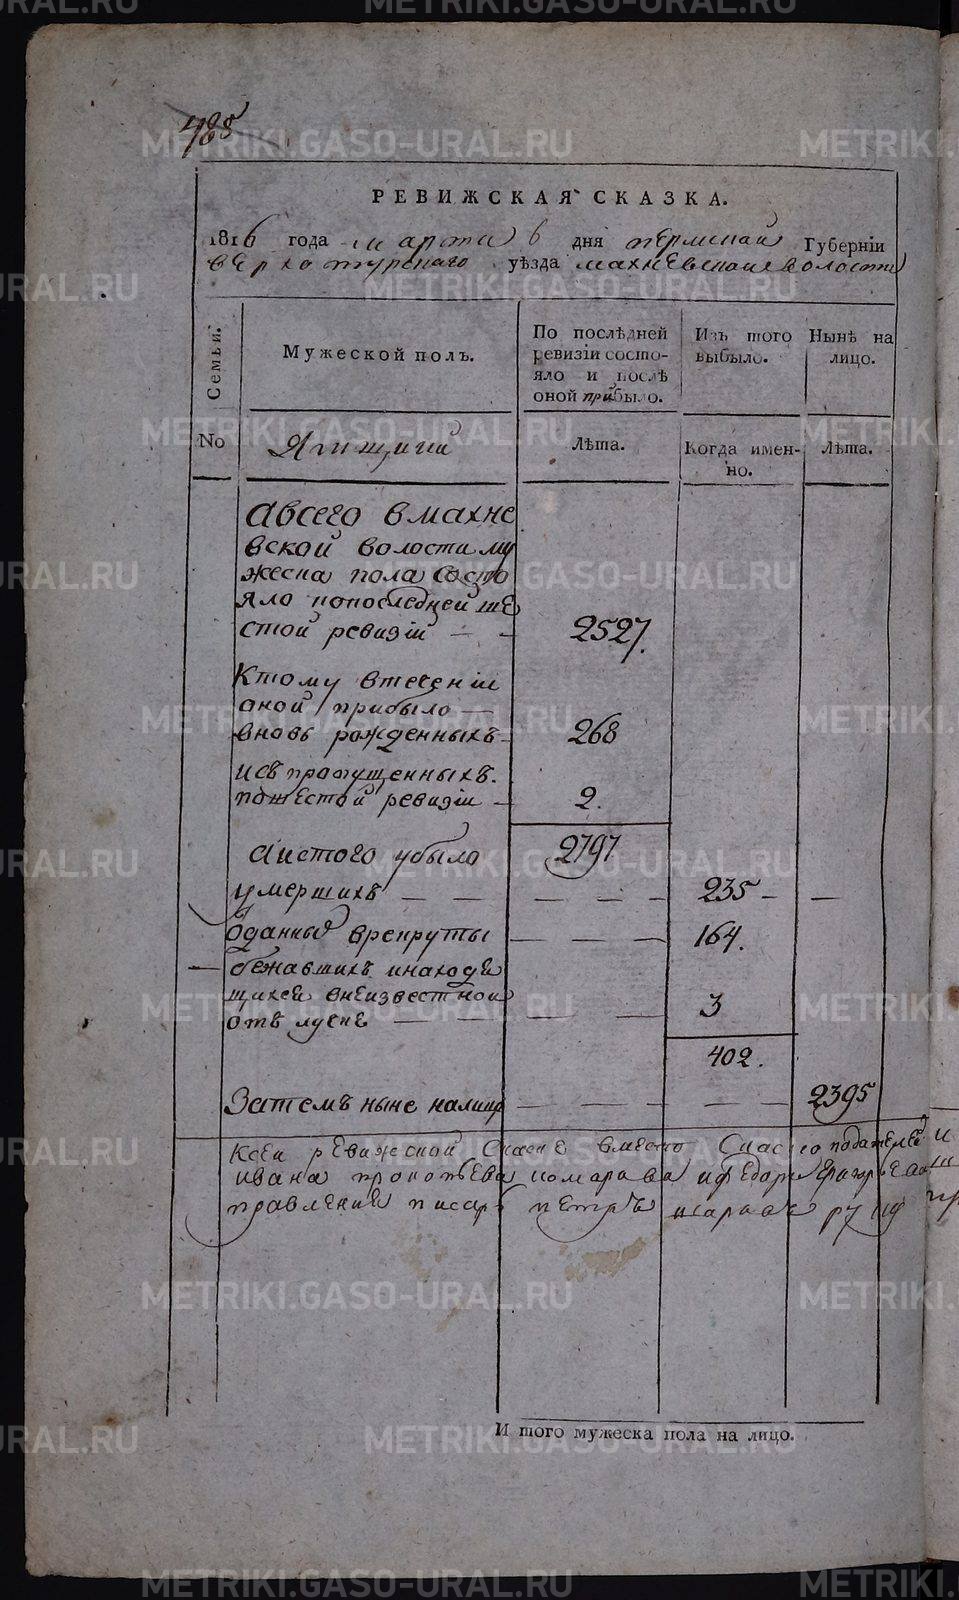 485
РЕВИЖСКАЯ СКАЗКА.
1816 года марта 6 дня пермской Губерніи
верхотурскаго уѣзда махневской волости
Семьи.
Мужеской полъ.
По послѣдней ревизіи состо-
яло и послѣ оной прибыло.
Изъ того выбыло.
Ныне на лицо.
No
Ямщики
Лѣта.
Когда имен-
но.
Лѣта.
авсего вмахне
вской волости му
жеска пола состо
яло попоследней ше
стой ревизіи — — 2527.
Ктому втеченіи
оной прибыло —
вновь рожденныхъ — 268
исъ пропущенныхъ.
пошестой ревизіи — 2.
2797
аистого убыло
умершихъ — — — — — 235 — —
отданныхъ врекруты — — — 164.
— бежавшихъ инаходя
щихся внеизвестной
отълучке — — — — 3
402.
Затемъ ныне налицо — — — — — 2395
Ксей ревижской Скаске вместо Скаско подателей
ивана прокопьева комарова ифедора
правления писарь петръ руку
И того мужеска пола на лицо.
METRIKI.GASO-URAL.RU